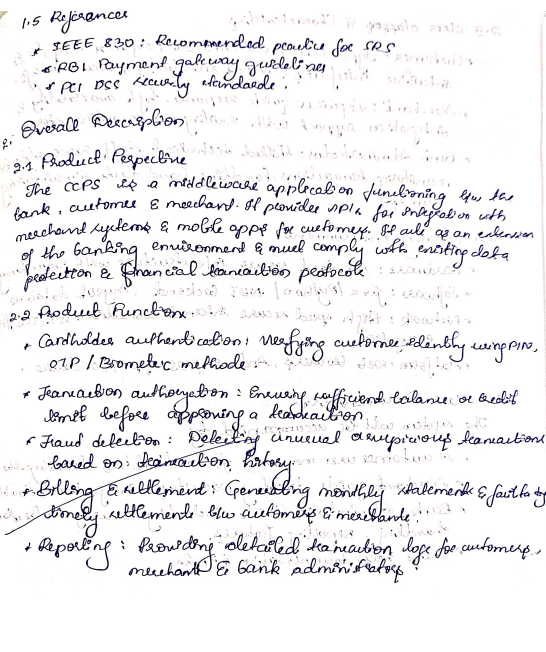 1.5 References
* IEEE 830: Recommended practice for SRS
* RBI Payment gateway guidelines
* PCI DSS security standards.
2. Overall Description
2.1 Product Perspective
The CCPS is a middleware application functioning b/w the
bank, customer & merchant. It provides APIs for integration with
merchant systems & mobile apps for customers. It acts as an extension
of the banking environment & must comply with existing data
protection & financial transaction protocols.
2.2 Product Function.
* Cardholder authentication: Verifying customer identity using PIN,
OTP / Biometric methods.
* Transaction authorization: Ensuring sufficient balance or credit
limit before approving a transaction
* Fraud detection: Detecting unusual or suspicious transactions
based on transaction history.
* Billing & settlement: Generating monthly statements &
timely settlements b/w customers & merchants.
* Reporting: Providing detailed transaction logs for customers,
merchants & bank administrators.